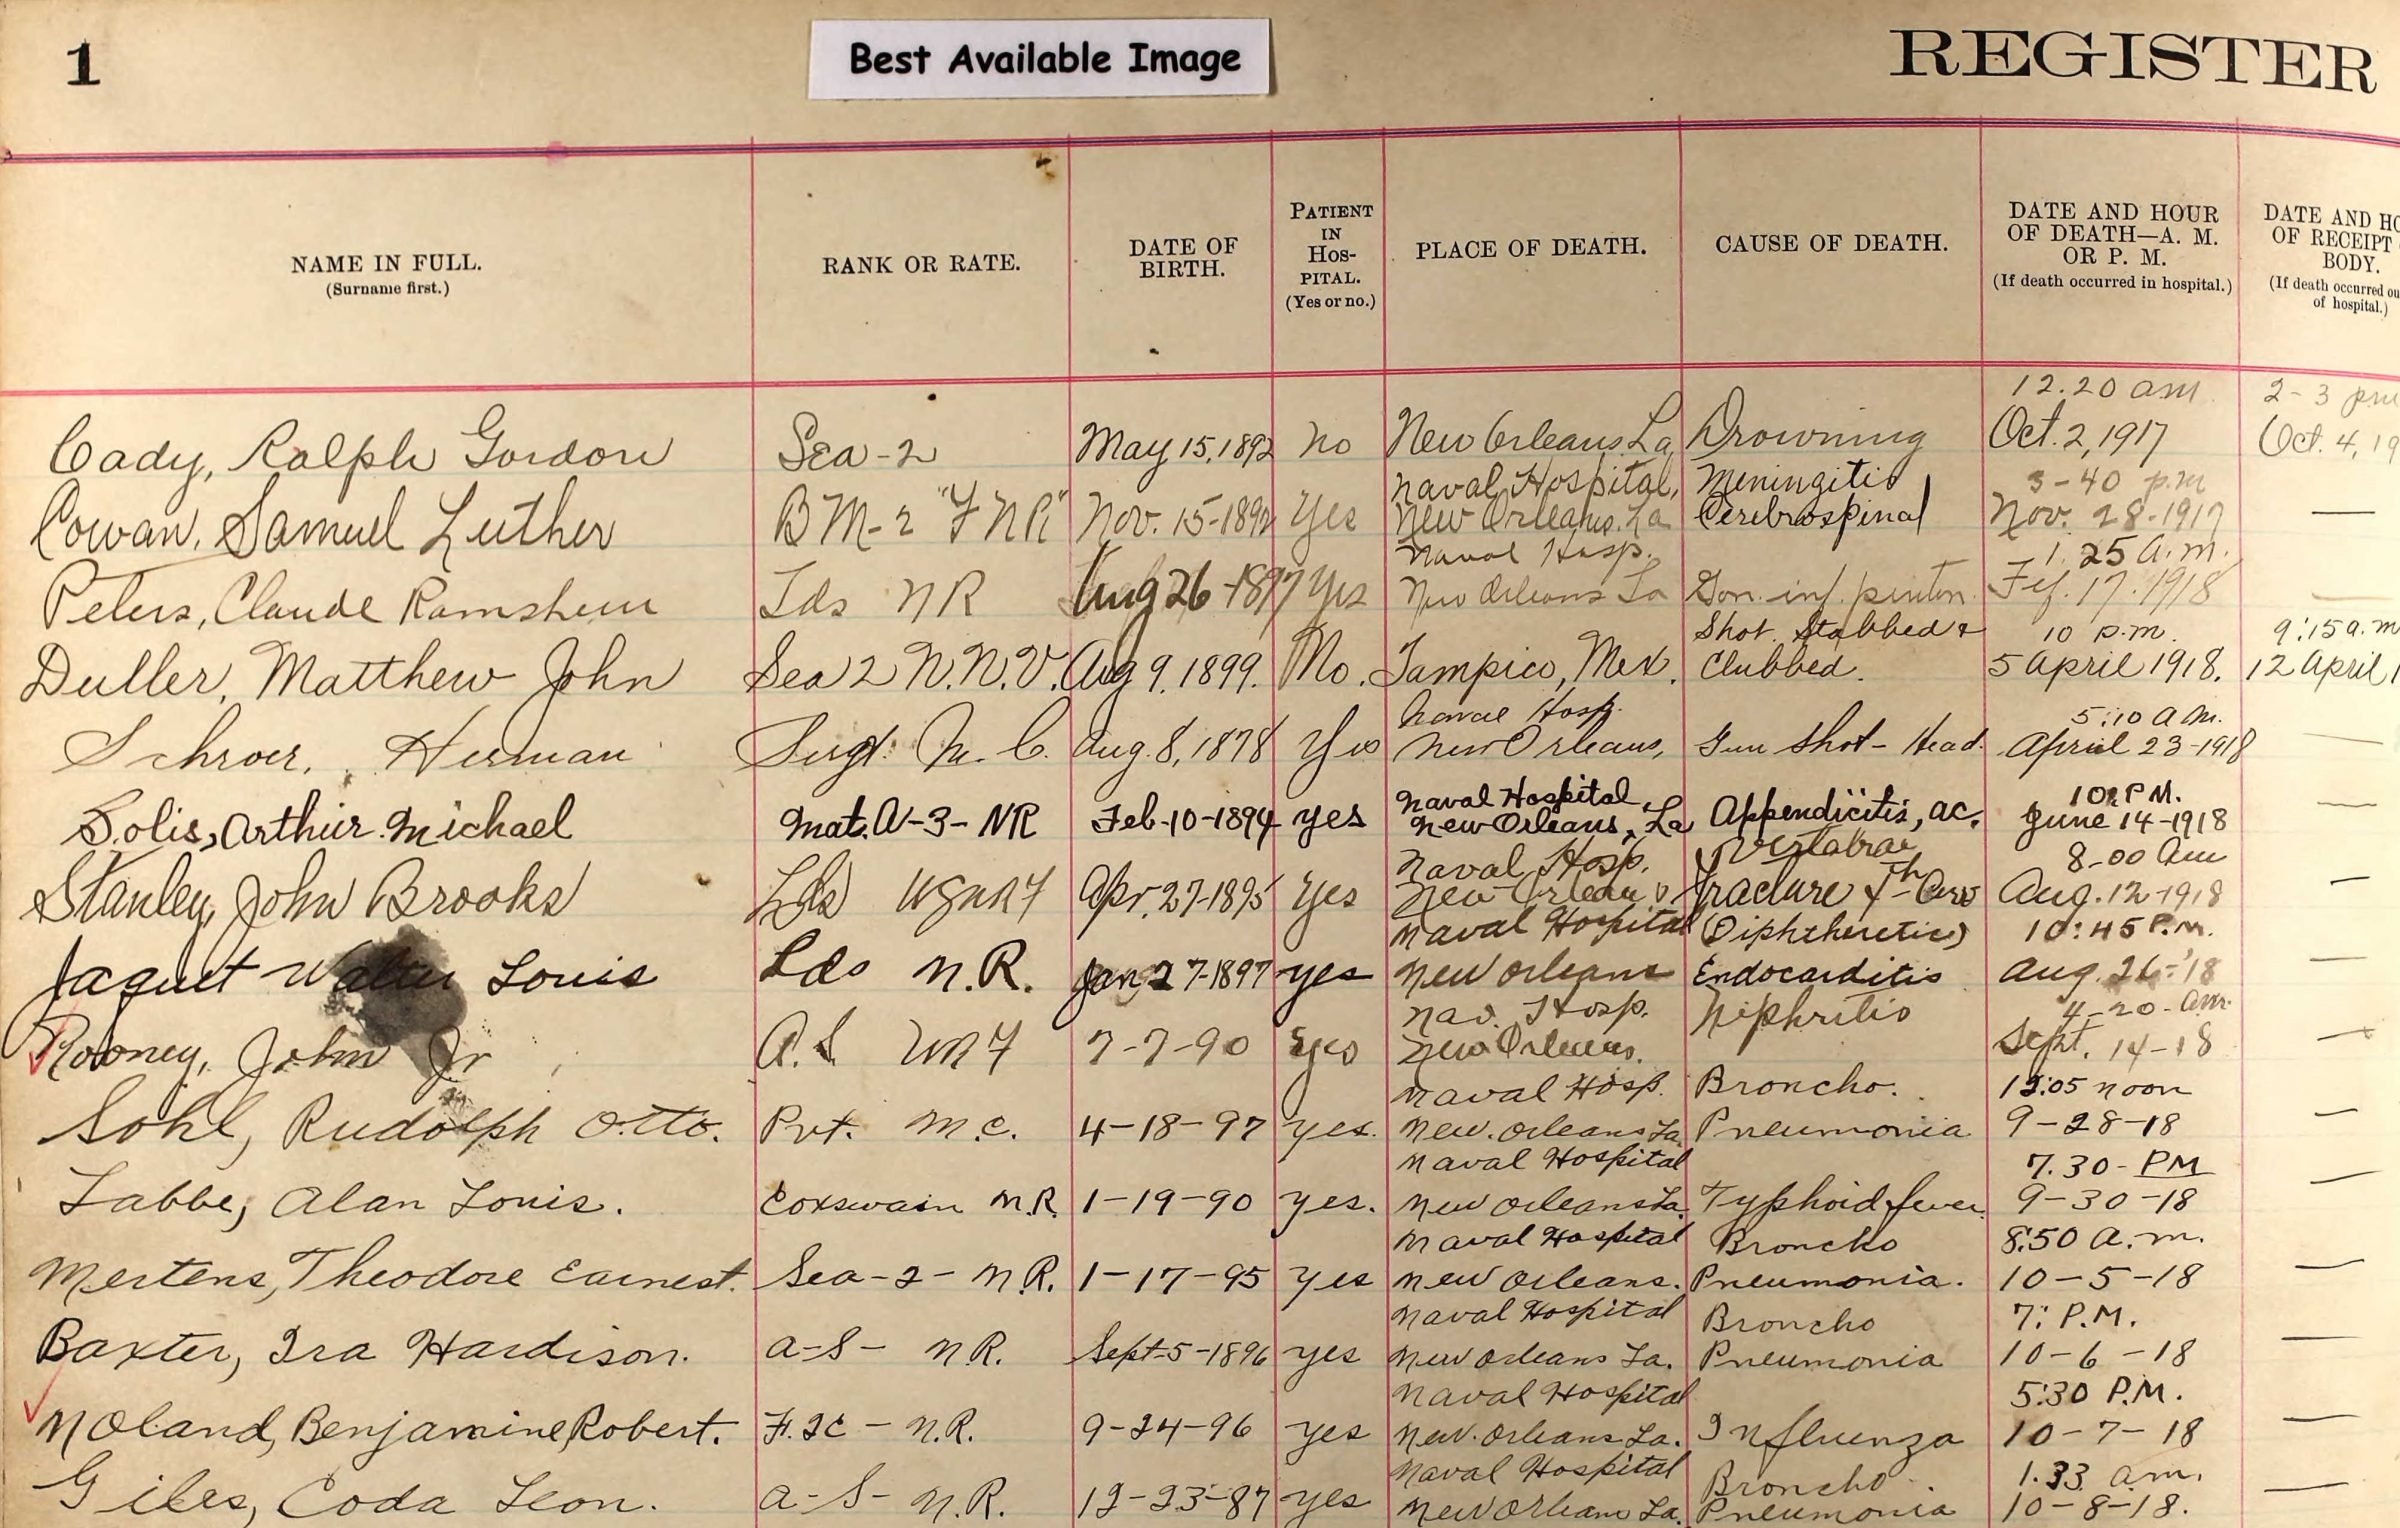 1
Best Available Image
REGISTER
NAME IN FULL.
(Surname first.)
RANK OR RATE.
DATE OF
BIRTH.
PATIENT
IN
HOS-
PITAL.
(Yes or no.)
PLACE OF DEATH.
CAUSE OF DEATH.
DATE AND HOUR
OF DEATH—A. M.
OR P. M.
(If death occurred in hospital.)
DATE AND HO
OF RECEIPT
BODY.
(If death occurred ou
of hospital.)
12.20 am 2-3 pm
Cady, Ralph Gordon Sea-2 May 15, 1892 no New Orleans La Drowning Oct. 2, 1917 Oct. 4, 19
Naval Hospital, Meningitis 3-40 p.m
Cowan, Samuel Luther BM-2 "FNR" Nov. 15-1892 Yes New Orleans, La Cerebrospinal Nov. 28-1917 —
Naval Hosp. 1.25 a.m.
Peters, Claude Lds NR Aug 26-1897 Yes New Orleans La Gon. inf. 17-1918 —
Shot, Stabbed & 10 p.m. 9:15 a.m
Duller, Matthew John Sea 2 N.N.V. Aug 9, 1899. No. Tampico, Mex. Clubbed. 5 April 1918. 12 April 1
Naval Hosp. 5:10 A.M.
Schroer, Herman Sergt. M.C. Aug. 8, 1878 Yes New Orleans, Gun Shot - Head. April 23-1918 —
Naval Hospital, 10 P.M.
Solis, Arthur Michael Mat. A-3-NR Feb-10-1894 yes New Orleans, La Appendicitis, ac. June 14-1918 —
Naval Hosp. Vertabrae 8-00 am
Stanley, John Brooks Lds USNRF Apr. 27-1895 Yes New Orleans fracture 4th Cerv Aug. 12-1918 —
Naval Hospital (Diphtheretic) 10:45 P.M.
Jaquet Walter Louis Lds N.R. Jan 27-1897 yes New Orleans Endocarditis Aug. 26-'18 —
Nav. Hosp. Nephritis 4-20-am.
Rooney, John Jr A.S. 7-7-90 Yes New Orleans. Sept. 14-18 —
Naval Hosp. Broncho. 12:05 noon
Sohl, Rudolph Otto. Pvt. M.C. 4-18-97 yes. New. Orleans La Pneumonia 9-28-18 —
Naval Hospital 7.30-PM
Labbe, Alan Louis. Coxswain N.R. 1-19-90 yes. New Orleans La. Typhoid fever 9-30-18 —
Naval Hospital Broncho 8:50 a.m.
Mertens, Theodore Earnest. Sea-2-N.R. 1-17-95 yes New Orleans. Pneumonia. 10-5-18 —
Naval Hospital Broncho 7: P.M.
Baxter, Ira Hardison. A-S- N.R. Sept-5-1896 yes New Orleans La. Pneumonia 10-6-18 —
Naval Hospital 5:30 P.M.
Noland, Benjamine Robert. F.2C - N.R. 9-24-96 yes New. Orleans La. Influenza 10-7-18 —
Naval Hospital Broncho 1.33 a.m.
Giles, Coda Leon. A-S- N.R. 12-23-87 yes New Orleans La. Pneumonia 10-8-18. —